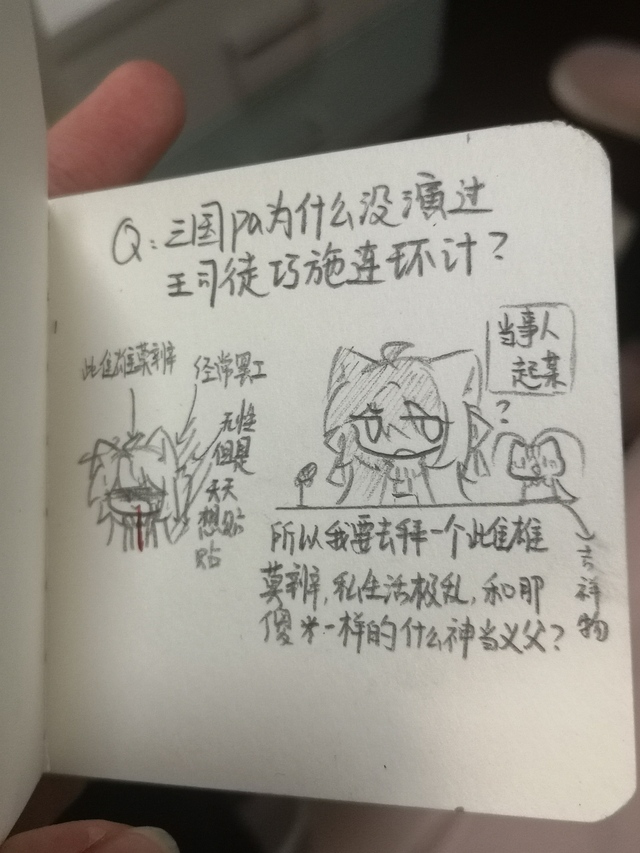 Q:三国pa为什么没演过
王司徒巧施连环计?
此雌雄莫辨
经常罢工
无性
但是
天天
想贴
贴
当事人
起某
?
所以我要去拜一个此雌雄
莫辨,私生活极乱,和那
傻*一样的什么神当义父?
吉祥物